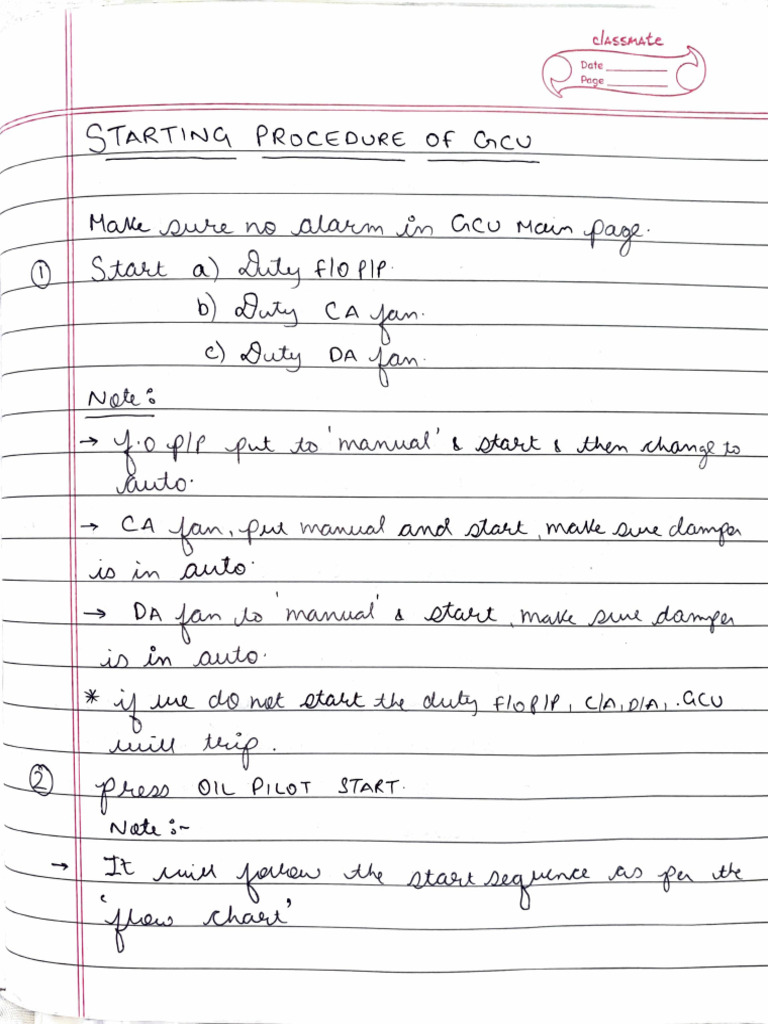 classmate
Date
Page
STARTING PROCEDURE OF GCU
Make sure no alarm in GCU Main page.
① Start a) Duty f/o p/p.
b) Duty CA fan.
c) Duty DA fan.
Note:
→ f.o p/p put to 'manual' & start & then change to
auto.
→ CA fan, put manual and start, make sure damper
is in auto.
→ DA fan to 'manual' & start, make sure damper
is in auto.
* if we do not start the duty f/o p/p, C/A, D/A, .GCU
will trip.
② press OIL PILOT START.
Note :-
→ It will follow the start sequence as per the
'flow chart'